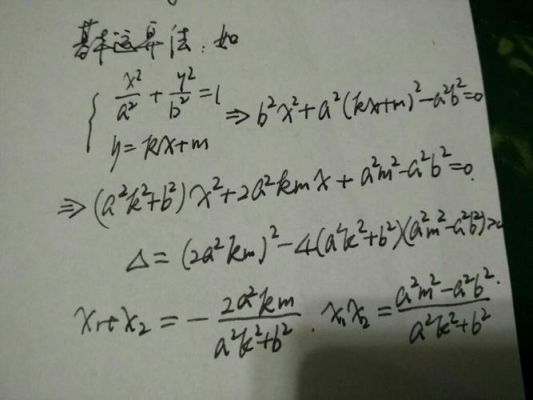 基本运算法:如
{ x²/a² + y²/b² = 1
y = kx+m
⇒ b²x²+a²(kx+m)²-a²b²=0
⇒ (a²k²+b²)x²+2a²kmx+a²m²-a²b²=0.
Δ = (2a²km)²-4(a²k²+b²)(a²m²-a²b²)>0
x₁+x₂ = - 2a²km/(a²k²+b²) . x₁x₂ = (a²m²-a²b²)/(a²k²+b²) .